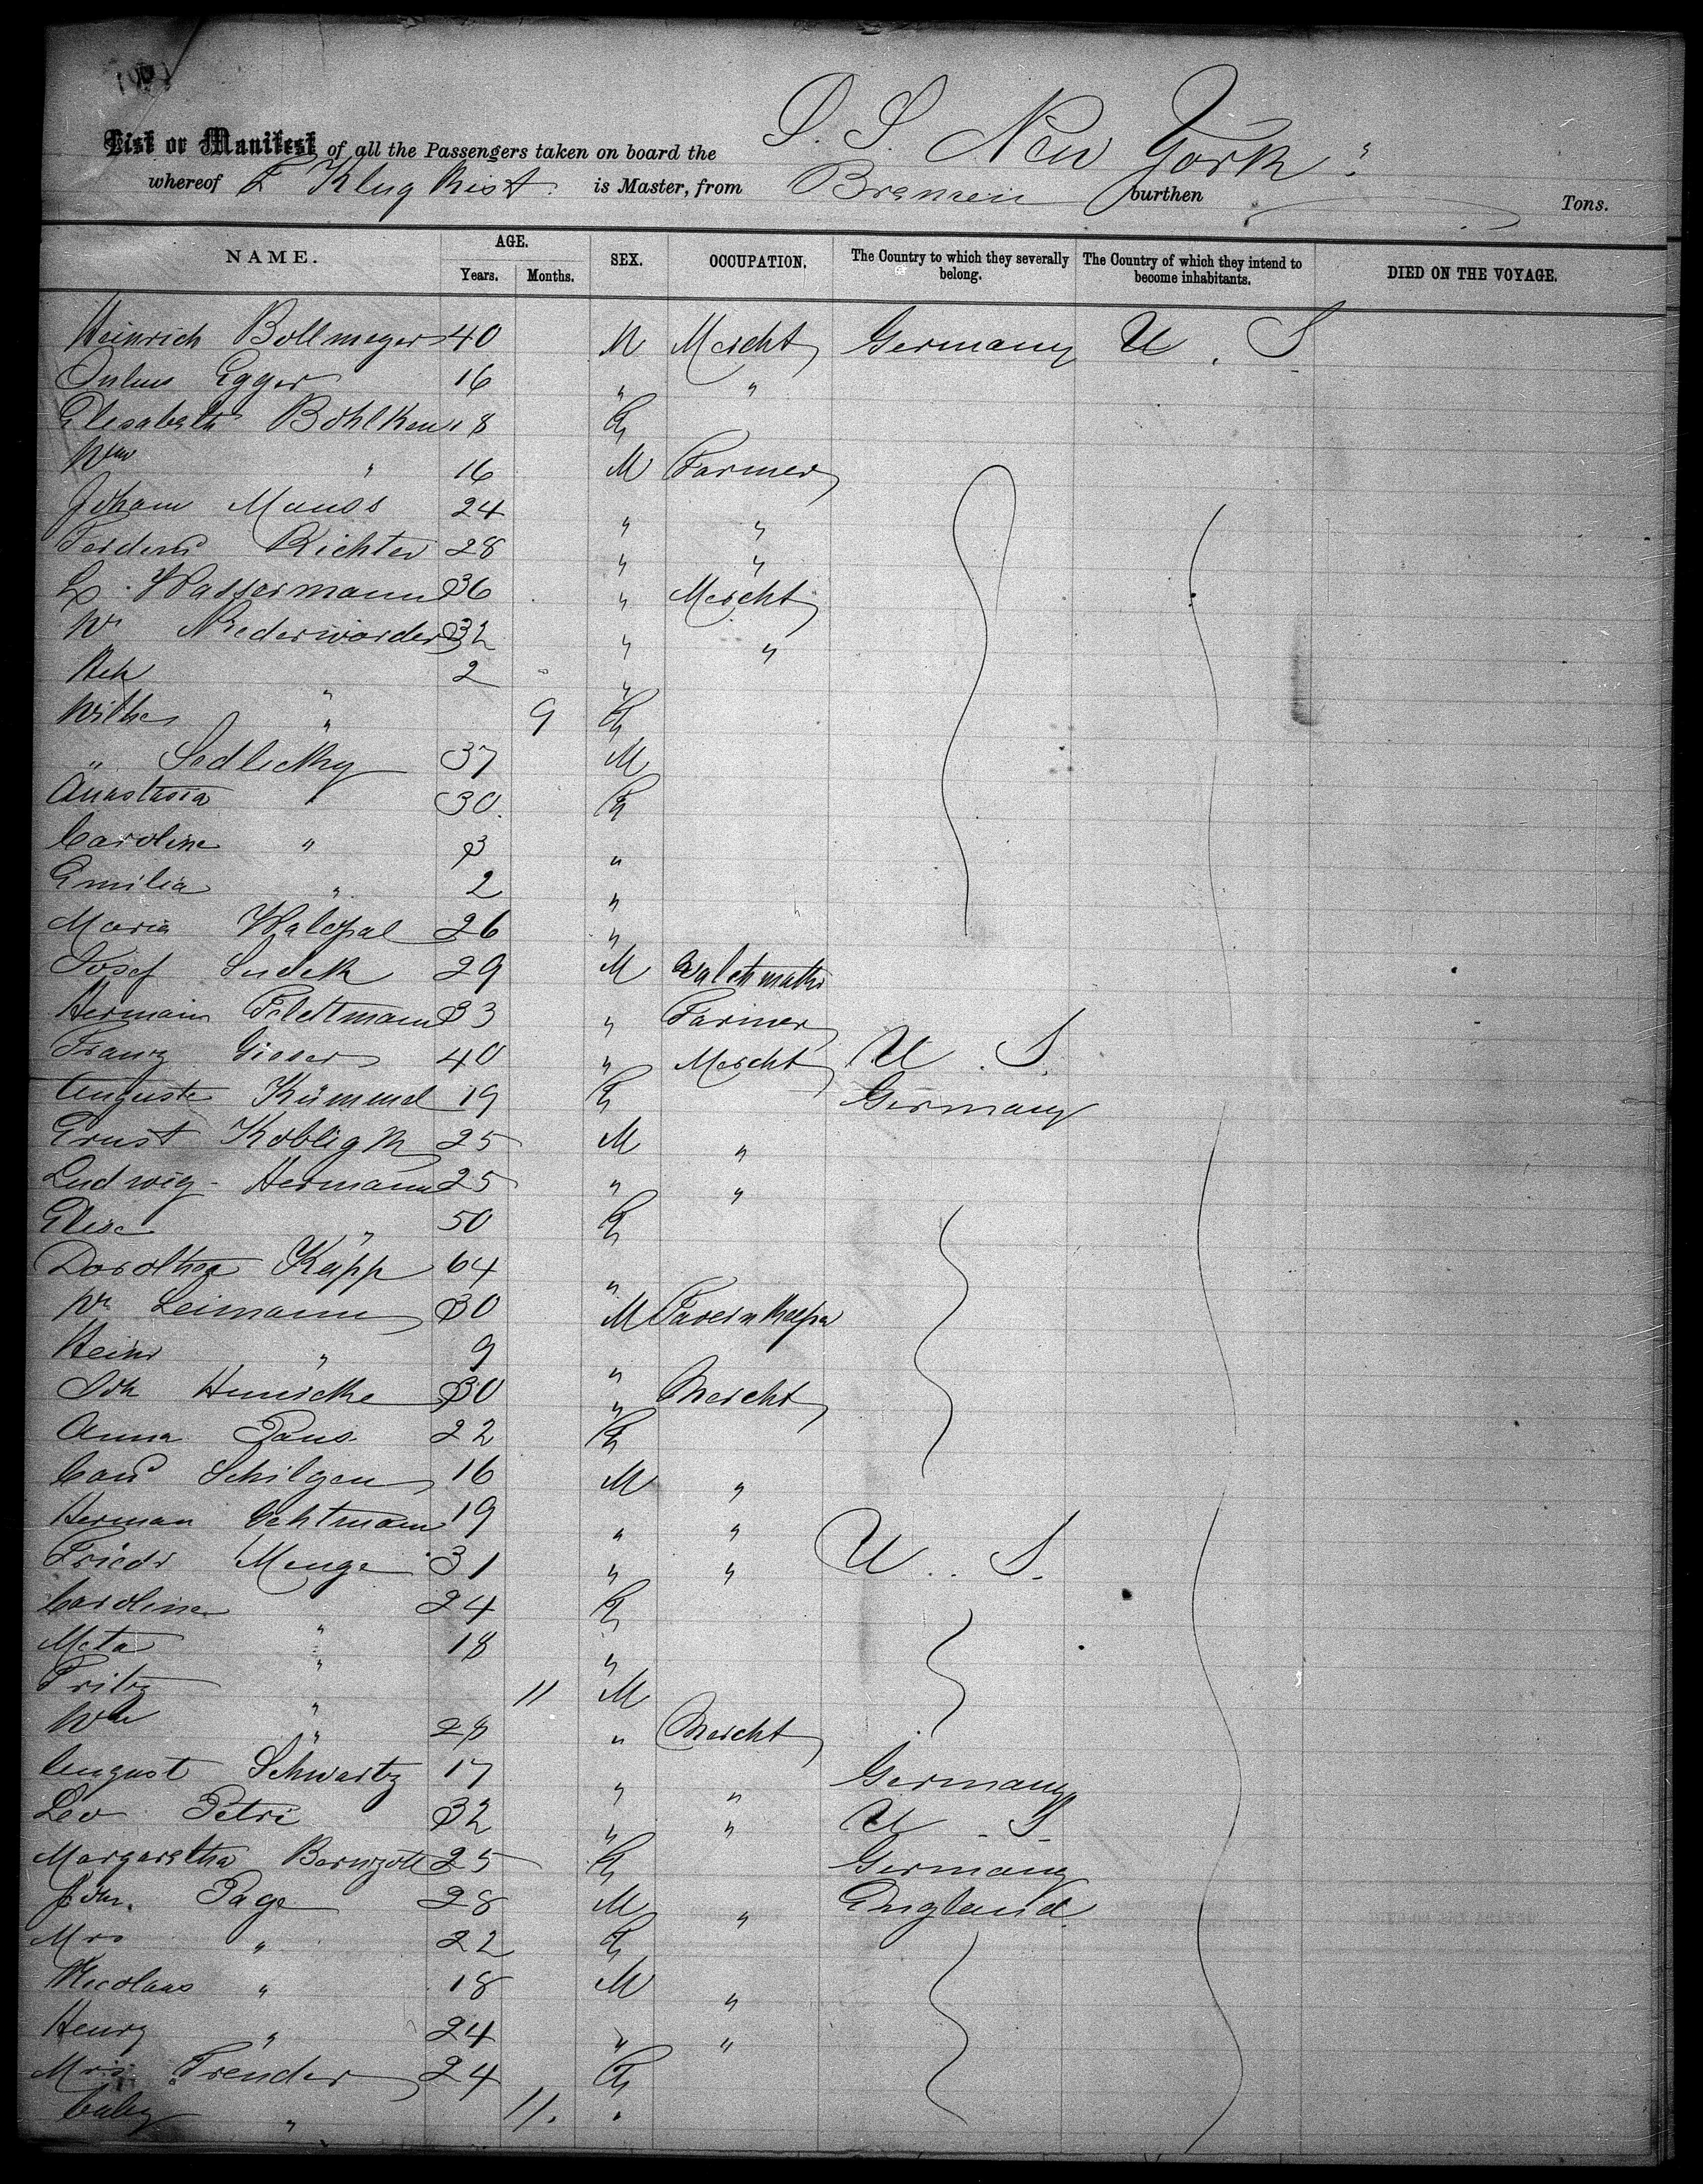 List or Manifest of all the Passengers taken on board the S. S. New York "
whereof F Klugkist is Master, from Bremen burthen Tons.
NAME. AGE. Years. Months. SEX. OCCUPATION. The Country to which they severally belong. The Country of which they intend to become inhabitants. DIED ON THE VOYAGE.
Heinrich Bollmeyer 40 M Mercht Germany U. S
Egger 16 " "
Elisabeth Bohlken 18 F
Wm " 16 M Farmer
Johann Mauss 24 " "
Ferdend Richter 28 " "
L. Wassermann 36 " Mercht
Wm Niederwörder 32 " "
Hch " 2 "
Wilhe " 9 F
" Sedlecky 37 M
Anastasia " 30 F
Caroline " 3 "
Emilia " 2 "
Maria 26 "
Josef Sudek 29 M
Hermann Feldtmann 33 " Farmer
Franz Gieser 40 " Mercht U. S.
Auguste Kümmel 19 F Germany
Ernst Kobligk 25 M "
Ludwig Hermann 25 " "
Elise " 50 F
Dorothea Kapp 64 "
Wm Leimann 30 M Tavernkeepr
Heinr " 9 "
Joh 30 " Mercht
Anna Paus 22 F
Carl Schilgen 16 M "
Herman Gehtmann 19 " "
Friedr Menge 31 " " U. S.
Caroline " 24 F
Meta " 18 "
Fritz " 11 M
Wm " 28 " Mercht
August Schwartz 17 " " Germany
Leo Petri 32 " " U. S.
Margaretha 25 F Germany
John. Page 28 M " England
Mrs " 22 F
Nicolaas " 18 M "
Henry " 24 " "
Mrs Frender 24 F
baby " 11.